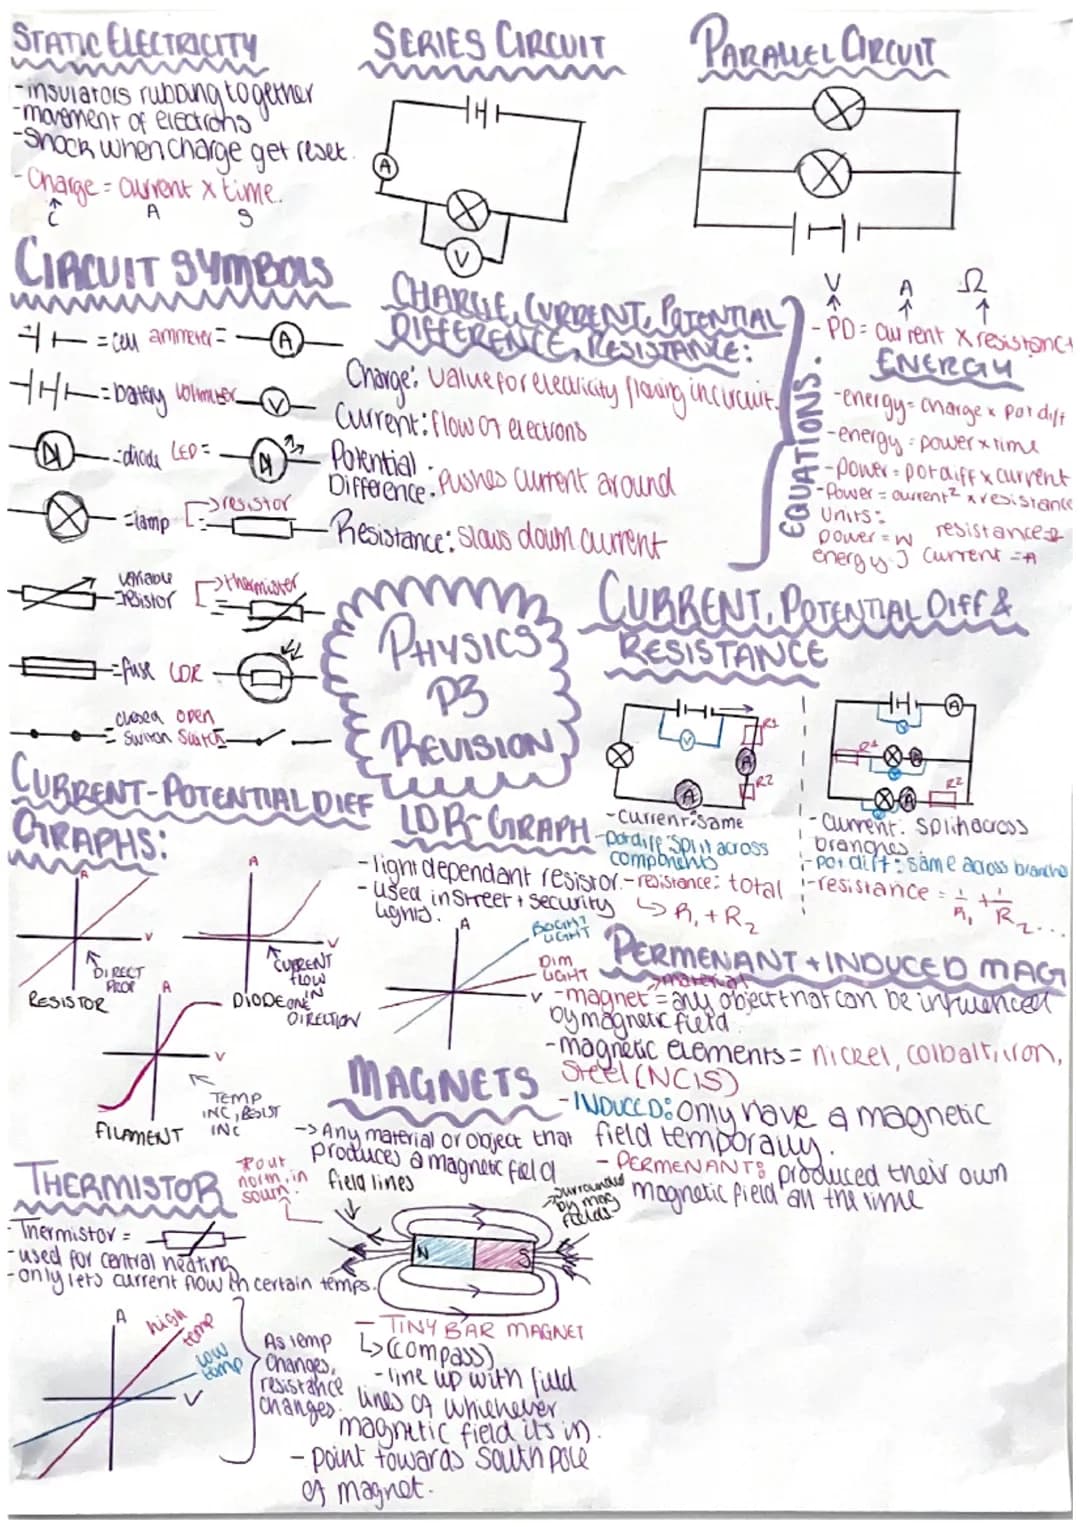 STATIC ELECTRICITY
-insulators rubbing together
-movement of electrons
-shock when charge get reset.
-Charge = Current x time.
C A S
SERIES CIRCUIT
A
V
PARALLEL CIRCUIT
CIRCUIT SYMBOLS
= cell ammeter = A
= battery voltmeter V
= diode LED =
= lamp
→ resistor
=
variable
= resistor
→ thermister
=
= fuse LDR
closed open
= switch switch
CHARGE, CURRENT, POTENTIAL
DIFFERENCE, RESISTANCE:
Charge: value for electricity flowing in circuit.
Current: flow of electrons
Potential
Difference: Pushes current around
Resistance: Slows down current
EQUATIONS.
V A Ω
- PD = Current x resistance
ENERGY
-energy = charge x pot diff
-energy = power x time
-power = pot diff x current
-Power = current² x resistance
Units:
power = W resistance = Ω
energy J current = A
PHYSICS
P3
REVISION
CURRENT, POTENTIAL DIFF &
RESISTANCE
V
R1
A
R2
A
-current: same
-pot diff: split across
components
-resistance: total
↳ R₁ + R₂
A
R1
A
A
R2
- current: split across
branches
- pot diff: same across branche
-resistance = 1/R₁ + 1/R₂...
CURRENT-POTENTIAL DIFF
GRAPHS:
A
V
DIRECT
PROP
RESISTOR
A
V
CURRENT
FLOW
IN
ONE
DIRECTION
DIODE
A
V
TEMP
INC, RESIST
INC
FILAMENT
LDR-GRAPH
-light dependant resistor.
-used in street + security
lights.
A
BRIGHT
LIGHT
DIM
LIGHT
V
PERMENANT + INDUCED MAG
→ material
-magnet = any object that can be influenced
by magnetic field.
-magnetic elements = nickel, colbalt, iron,
Steel (NCIS)
-INDUCED: only have a magnetic
field temporaily.
- PERMENANT: produced their own
magnetic field all the time
MAGNETS
-> Any material or object that
produces a magnetic field
field lines
north, in
south.
surrounded
by mag
fields
N S
- TINY BAR MAGNET
↳ (compass)
-line up with field
lines of whichever
magnetic field its in.
- point towards south pole
of magnet.
THERMISTOR
- Thermistor =
-used for central heating
-only lets current flow in certain temps.
A
high
temp
low
temp
V
As temp
changes,
resistance
changes.